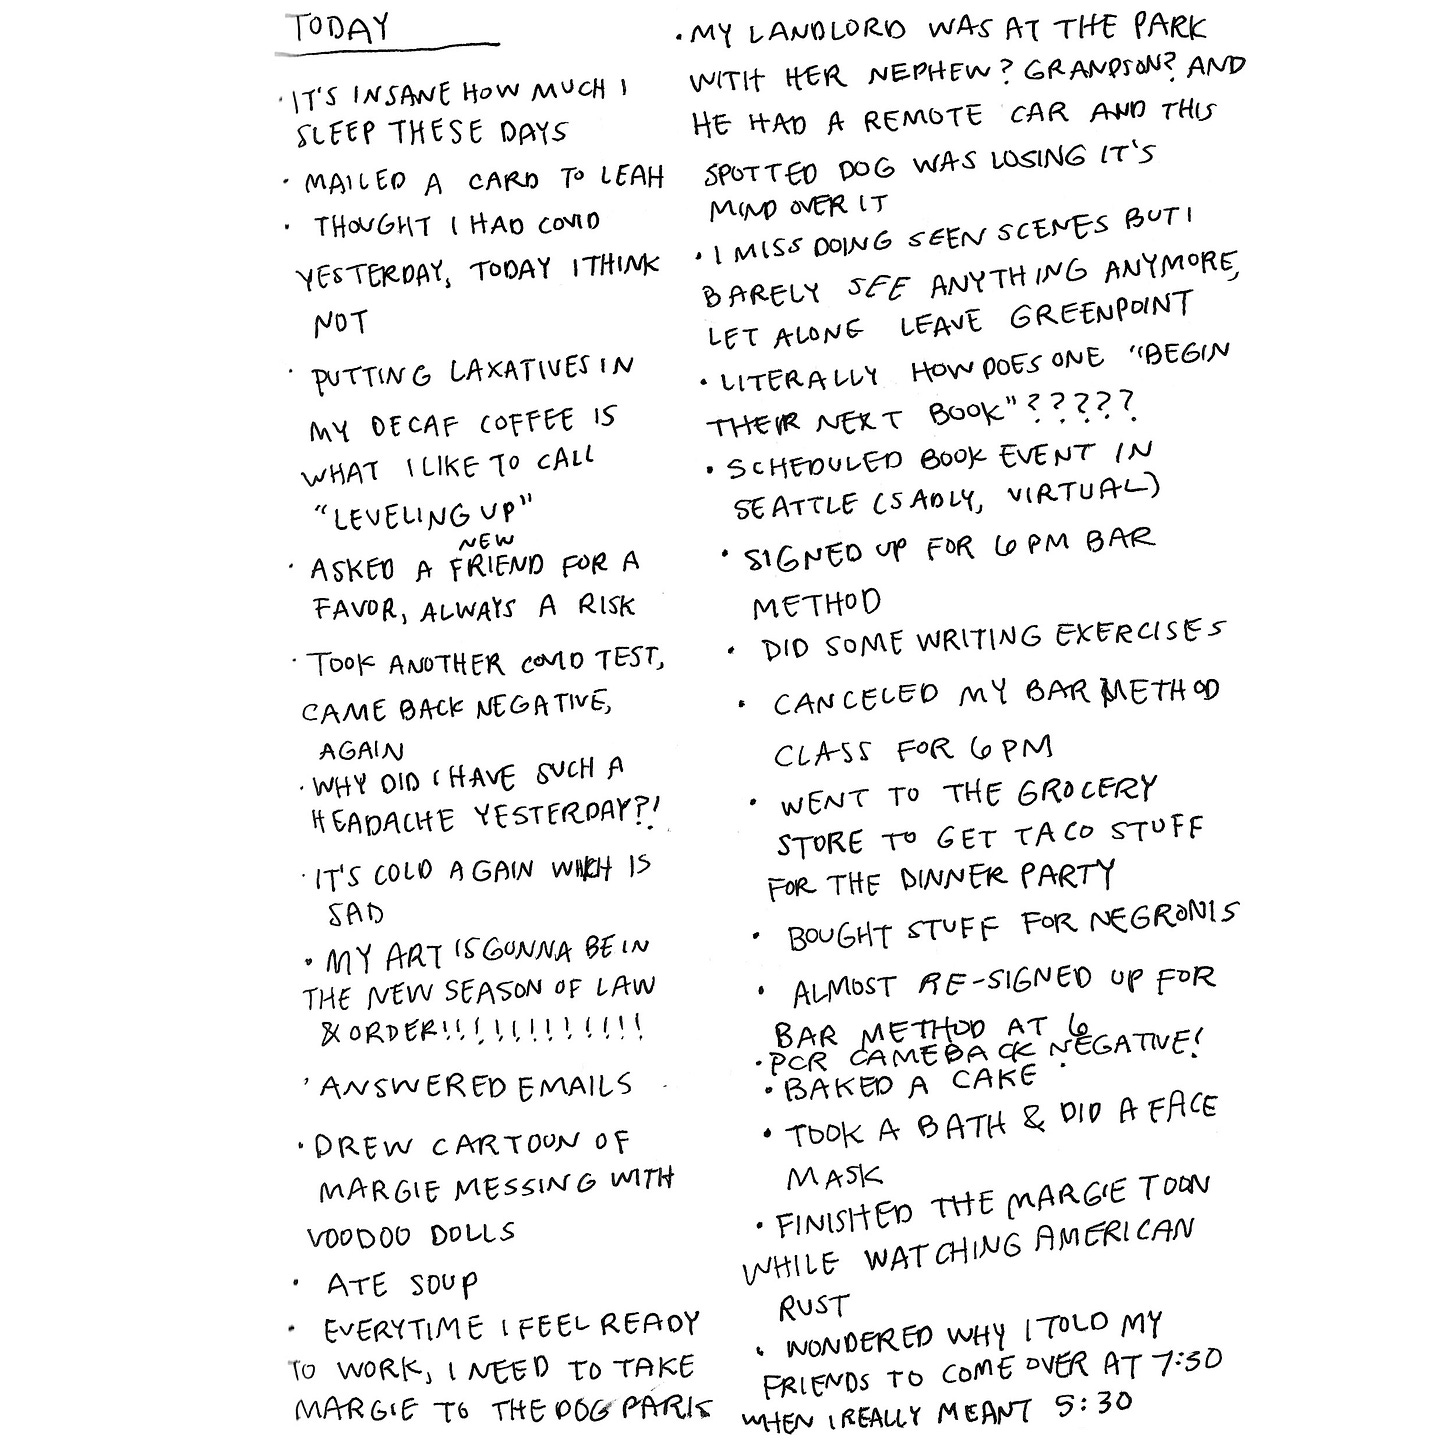 TODAY
· IT'S INSANE HOW MUCH I
SLEEP THESE DAYS
· MAILED A CARD TO LEAH
· THOUGHT I HAD COVID
YESTERDAY, TODAY I THINK
NOT
· PUTTING LAXATIVES IN
MY DECAF COFFEE IS
WHAT I LIKE TO CALL
"LEVELING UP"
NEW
· ASKED A FRIEND FOR A
FAVOR, ALWAYS A RISK
· TOOK ANOTHER COVID TEST,
CAME BACK NEGATIVE,
AGAIN
· WHY DID I HAVE SUCH A
HEADACHE YESTERDAY?!
· IT'S COLD AGAIN WHICH IS
SAD
· MY ART IS GUNNA BE IN
THE NEW SEASON OF LAW
& ORDER!!!!!!!!!!!!!
· ANSWERED EMAILS
· DREW CARTOON OF
MARGIE MESSING WITH
VOODOO DOLLS
· ATE SOUP
· EVERYTIME I FEEL READY
TO WORK, I NEED TO TAKE
MARGIE TO THE DOG PARK
· MY LANDLORD WAS AT THE PARK
WITH HER NEPHEW? GRANDSON? AND
HE HAD A REMOTE CAR AND THIS
SPOTTED DOG WAS LOSING IT'S
MIND OVER IT
· I MISS DOING SEEN SCENES BUT I
BARELY SEE ANYTHING ANYMORE,
LET ALONE LEAVE GREENPOINT
· LITERALLY HOW DOES ONE "BEGIN
THEIR NEXT BOOK"?????
· SCHEDULED BOOK EVENT IN
SEATTLE (SADLY, VIRTUAL)
· SIGNED UP FOR 6 PM BAR
METHOD
· DID SOME WRITING EXERCISES
· CANCELED MY BAR METHOD
CLASS FOR 6 PM
· WENT TO THE GROCERY
STORE TO GET TACO STUFF
FOR THE DINNER PARTY
· BOUGHT STUFF FOR NEGRONIS
· ALMOST RE-SIGNED UP FOR
BAR METHOD AT 6
· PCR CAME BACK NEGATIVE!
· BAKED A CAKE
· TOOK A BATH & DID A FACE
MASK
· FINISHED THE MARGIE TOON
WHILE WATCHING AMERICAN
RUST
· WONDERED WHY I TOLD MY
FRIENDS TO COME OVER AT 7:30
WHEN I REALLY MEANT 5:30